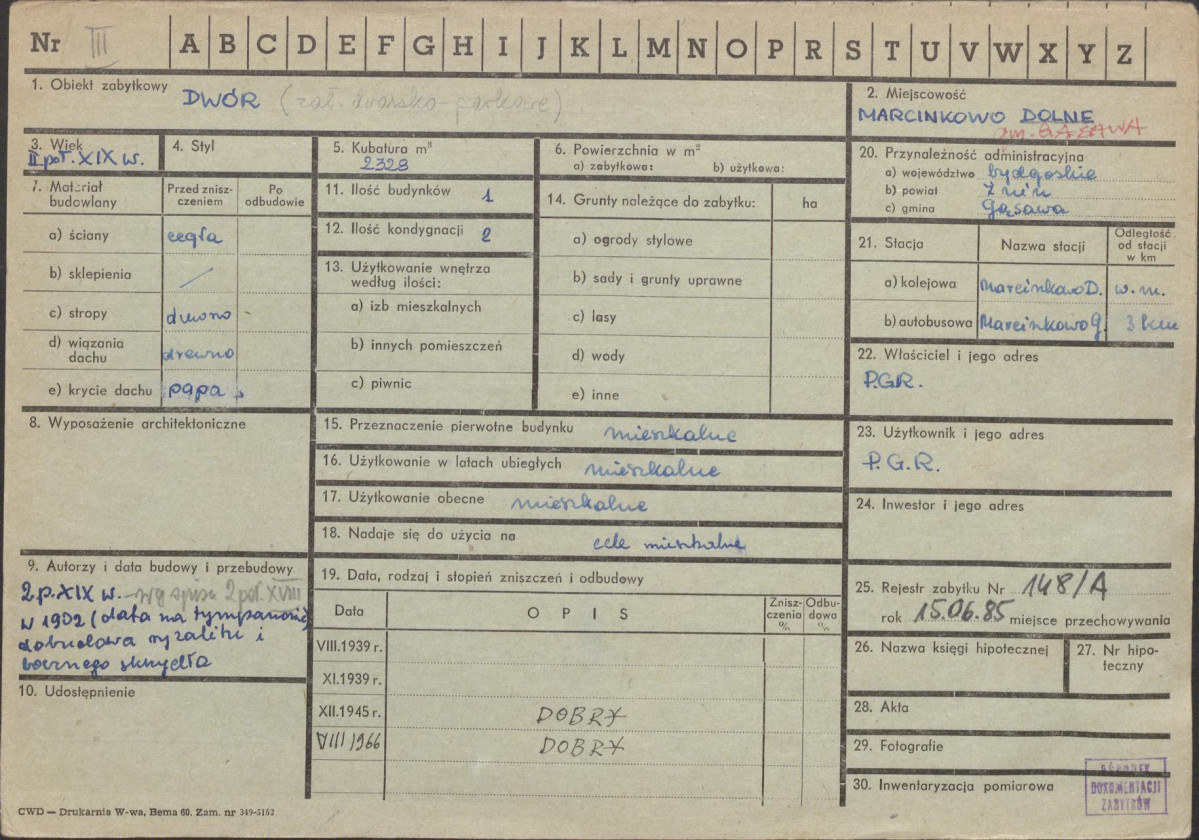 Nr III A B C D E F G H I J K L M N O P R S T U V W X Y Z
1. Obiekt zabytkowy
DWÓR (zał. dworsko-parkowe)
2. Miejscowość
MARCINKOWO DOLNE
gm. GĄSAWA
3. Wiek
II poł. XIX w.
4. Styl
5. Kubatura m³
2328
6. Powierzchnia w m²
a) zabytkowa: b) użytkowa:
20. Przynależność administracyjna
a) województwo bydgoskie
b) powiat Żnin
c) gmina Gąsawa
7. Materiał budowlany
Przed znisz-
czeniem
Po
odbudowie
a) ściany cegła
b) sklepienia /
c) stropy drewno
d) wiązania
dachu drewno
e) krycie dachu papa
11. Ilość budynków 1
12. Ilość kondygnacji 2
13. Użytkowanie wnętrza
według ilości:
a) izb mieszkalnych
b) innych pomieszczeń
c) piwnic
14. Grunty należące do zabytku: ha
a) ogrody stylowe
b) sady i grunty uprawne
c) lasy
d) wody
e) inne
21. Stacja
Nazwa stacji
Odległość
od stacji
w km
a) kolejowa Marcinkowo D. w. m.
b) autobusowa Marcinkowo G. 3 km
22. Właściciel i jego adres
P.G.R.
8. Wyposażenie architektoniczne
15. Przeznaczenie pierwotne budynku mieszkalne
16. Użytkowanie w latach ubiegłych mieszkalne
17. Użytkowanie obecne mieszkalne
18. Nadaje się do użycia na cele mieszkalne
23. Użytkownik i jego adres
P.G.R.
24. Inwestor i jego adres
9. Autorzy i data budowy i przebudowy
2 p. XIX w. - wg spisu 2 poł. XVIII
w 1902 (data na tympanonie)
dobudowa ryzalitu i
bocznego skrzydła
10. Udostępnienie
19. Data, rodzaj i stopień zniszczeń i odbudowy
Data
OPIS
Znisz-
czenia
%
Odbu-
dowa
%
VIII.1939 r.
XI.1939 r.
XII.1945 r. DOBRY
VIII 1966 DOBRY
25. Rejestr zabytku Nr 148/A
rok 15.06.85 miejsce przechowywania
26. Nazwa księgi hipotecznej
27. Nr hipo-
teczny
28. Akta
29. Fotografie
30. Inwentaryzacja pomiarowa
OŚRODEK
DOKUMENTACJI
ZABYTKÓW
CWD — Drukarnia W-wa, Bema 60. Zam. nr 349-5162